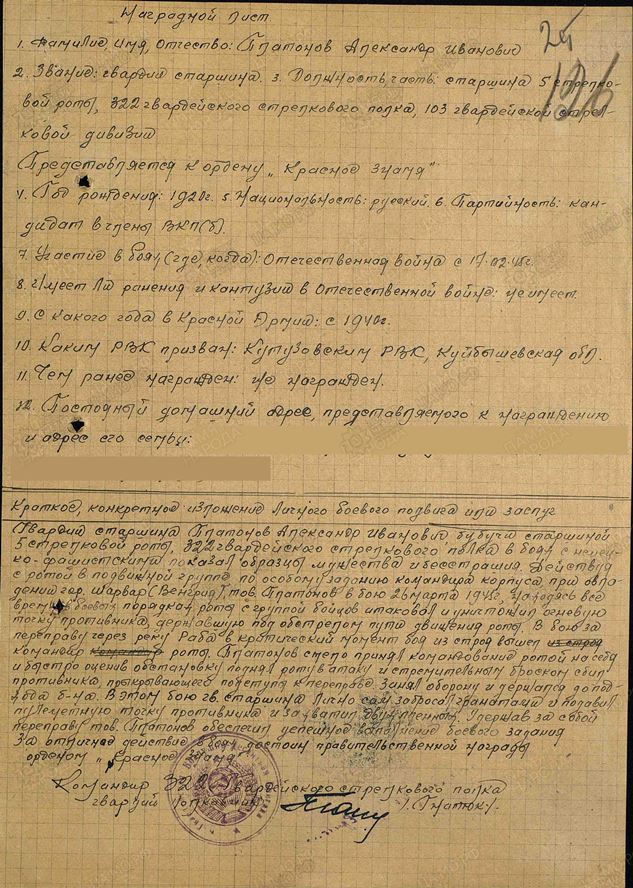 Наградной лист
1. Фамилия, имя, отчество: Платонов Александр Иванович
2. Звание: гвардии старшина. 3. Должность, часть: старшина 5 стрелко-
вой роты, 322 гвардейского стрелкового полка, 103 гвардейской стрел-
ковой дивизии
Представляется к ордену „Красное Знамя"
4. Год рождения: 1920г. 5. Национальность: русский. 6. Партийность: кан-
дидат в члены ВКП(б).
7. Участие в боях (где, когда): Отечественная война с 17.02.45г.
8. Имеет ли ранения и кантузии в Отечественной войне: не имеет.
9. С какого года в Красной Армии: с 1940г.
10. Каким РВК призван: Кутузовским РВК, Куйбышевская обл.
11. Чем ранее награжден: не награжден.
12. Постоянный домашний адрес, представляемого к награждению
и адрес его семьи:
Краткое, конкретное изложение личного боевого подвига или заслуг
Гвардии старшина Платонов Александр Иванович будучи старшиной
5 стрелковой роты, 322 гвардейского стрелкового полка в боях с немец-
ко-фашистскими показал образцы мужества и бесстрашия. Действуя
с ротой в подвижной группе по особому заданию командира корпуса, при овла-
дении гор. Шарвар (Венгрия) тов. Платонов в бою 28 марта 1945г. находясь все
время в боевых порядках роты с группой бойцов атаковал и уничтожил огневую
точку противника, державшую под обстрелом пути движения роты. В бою за
переправу через реку Раба в критический момент боя из строя вышел из строя
командир командир роты, Платонов смело принял командование ротой на себя
и быстро оценив обстановку поднял роту в атаку и стремительным броском сбил
противника прикрывающего подступы к переправе занял оборону и держался до под-
хода б-на. В этом бою гв. старшина лично сам забросал гранатами и подавил
пулеметную точку противника и захватил двух пленных. Удержав за собой
переправу тов. Платонов обеспечил успешное выполнение боевого задания
За отличное действие в боях достоин правительственной награды
орденом „Красное Знамя.
Командир 322 гвардейского стрелкового полка
гвардии полковник /Гнатюк/.
25
126